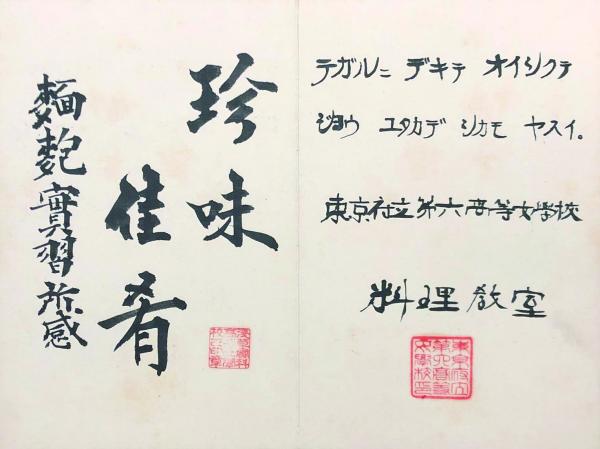 テガルニ デキテ オイシクテ
ジヨウ ユタカデ シカモ ヤスイ。
東京府立第六高等女學校
料理教室
東京府立
第六高等
女學校印
珍味
佳肴
麵麭實習所感